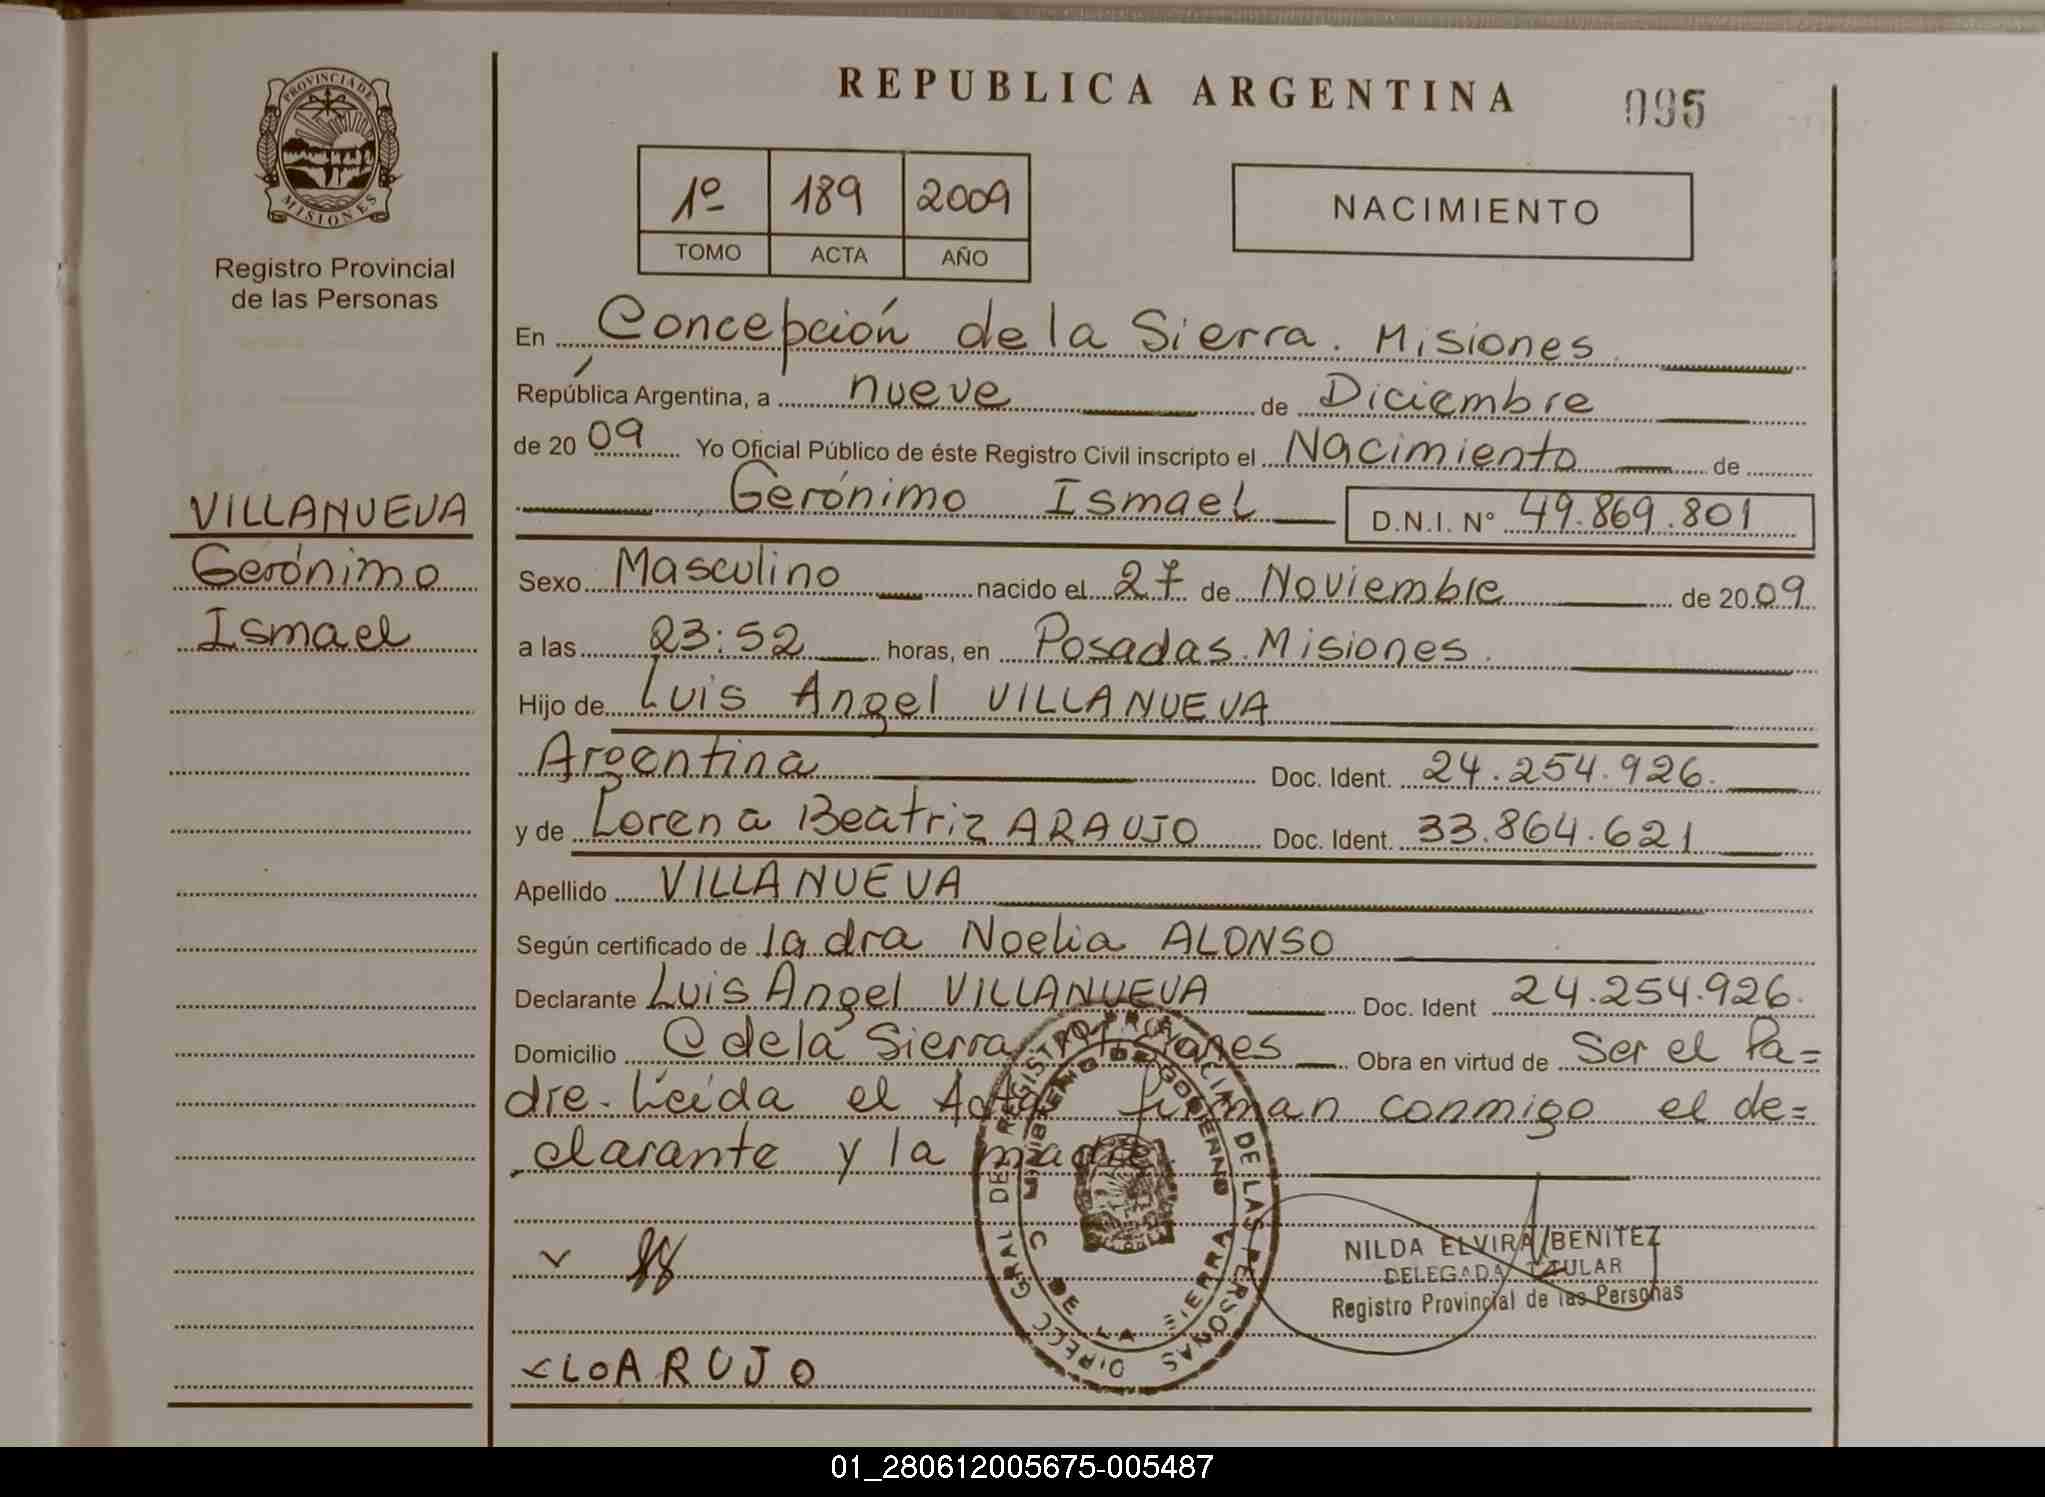 REPUBLICA ARGENTINA
095
PROVINCIA DE
MISIONES
Registro Provincial
de las Personas
1º 189 2009
TOMO ACTA AÑO
NACIMIENTO
VILLANUEVA
Gerónimo
Ismael
En Concepción de la Sierra. Misiones
República Argentina, a nueve de Diciembre
de 2009 Yo Oficial Público de éste Registro Civil inscripto el Nacimiento de
Gerónimo Ismael D.N.I. N° 49.869.801
Sexo Masculino nacido el 27 de Noviembre de 2009
a las 23:52 horas, en Posadas. Misiones.
Hijo de Luis Angel VILLANUEVA
Argentina Doc. Ident. 24.254.926.
y de Lorena Beatriz ARAUJO Doc. Ident. 33.864.621
Apellido VILLANUEVA
Según certificado de la dra Noelia ALONSO
Declarante Luis Angel VILLANUEVA Doc. Ident 24.254.926.
Domicilio C de la Sierra Misiones Obra en virtud de Ser el Pa=
dre. Leída el Acta firman conmigo el de=
clarante y la madre
DIRECC GRAL DE REGISTRO PROVINCIAL DE LAS PERSONAS
MINISTERIO DE GOBIERNO
C DE LA SIERRA
NILDA ELVIRA BENITEZ
DELEGADA TITULAR
Registro Provincial de las Personas
LOARUJO
01_280612005675-005487